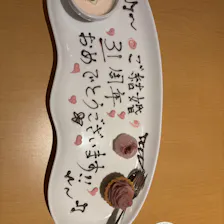 ご結婚
31周年
おめでとうございます!!